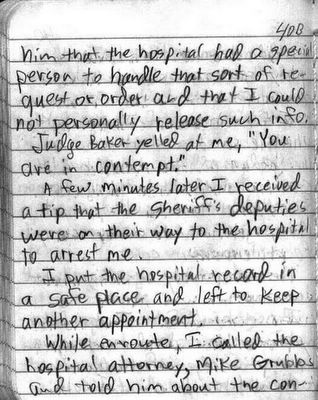 408
him that the hospital had a special
person to handle that sort of re-
quest or order and that I could
not personally release such info.
Judge Baker yelled at me, "You
are in contempt."
A few minutes later I received
a tip that the sheriff's deputies
were on their way to the hospital
to arrest me.
I put the hospital record in
a safe place and left to keep
another appointment.
While enroute, I called the
hospital attorney, Mike Grubbs
and told him about the con-